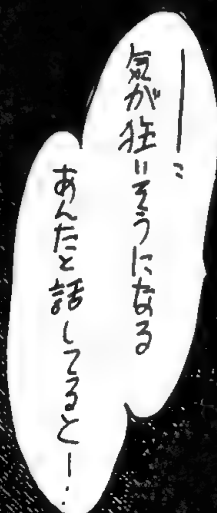 ──気が狂いそうになる
あんたと話してると─…